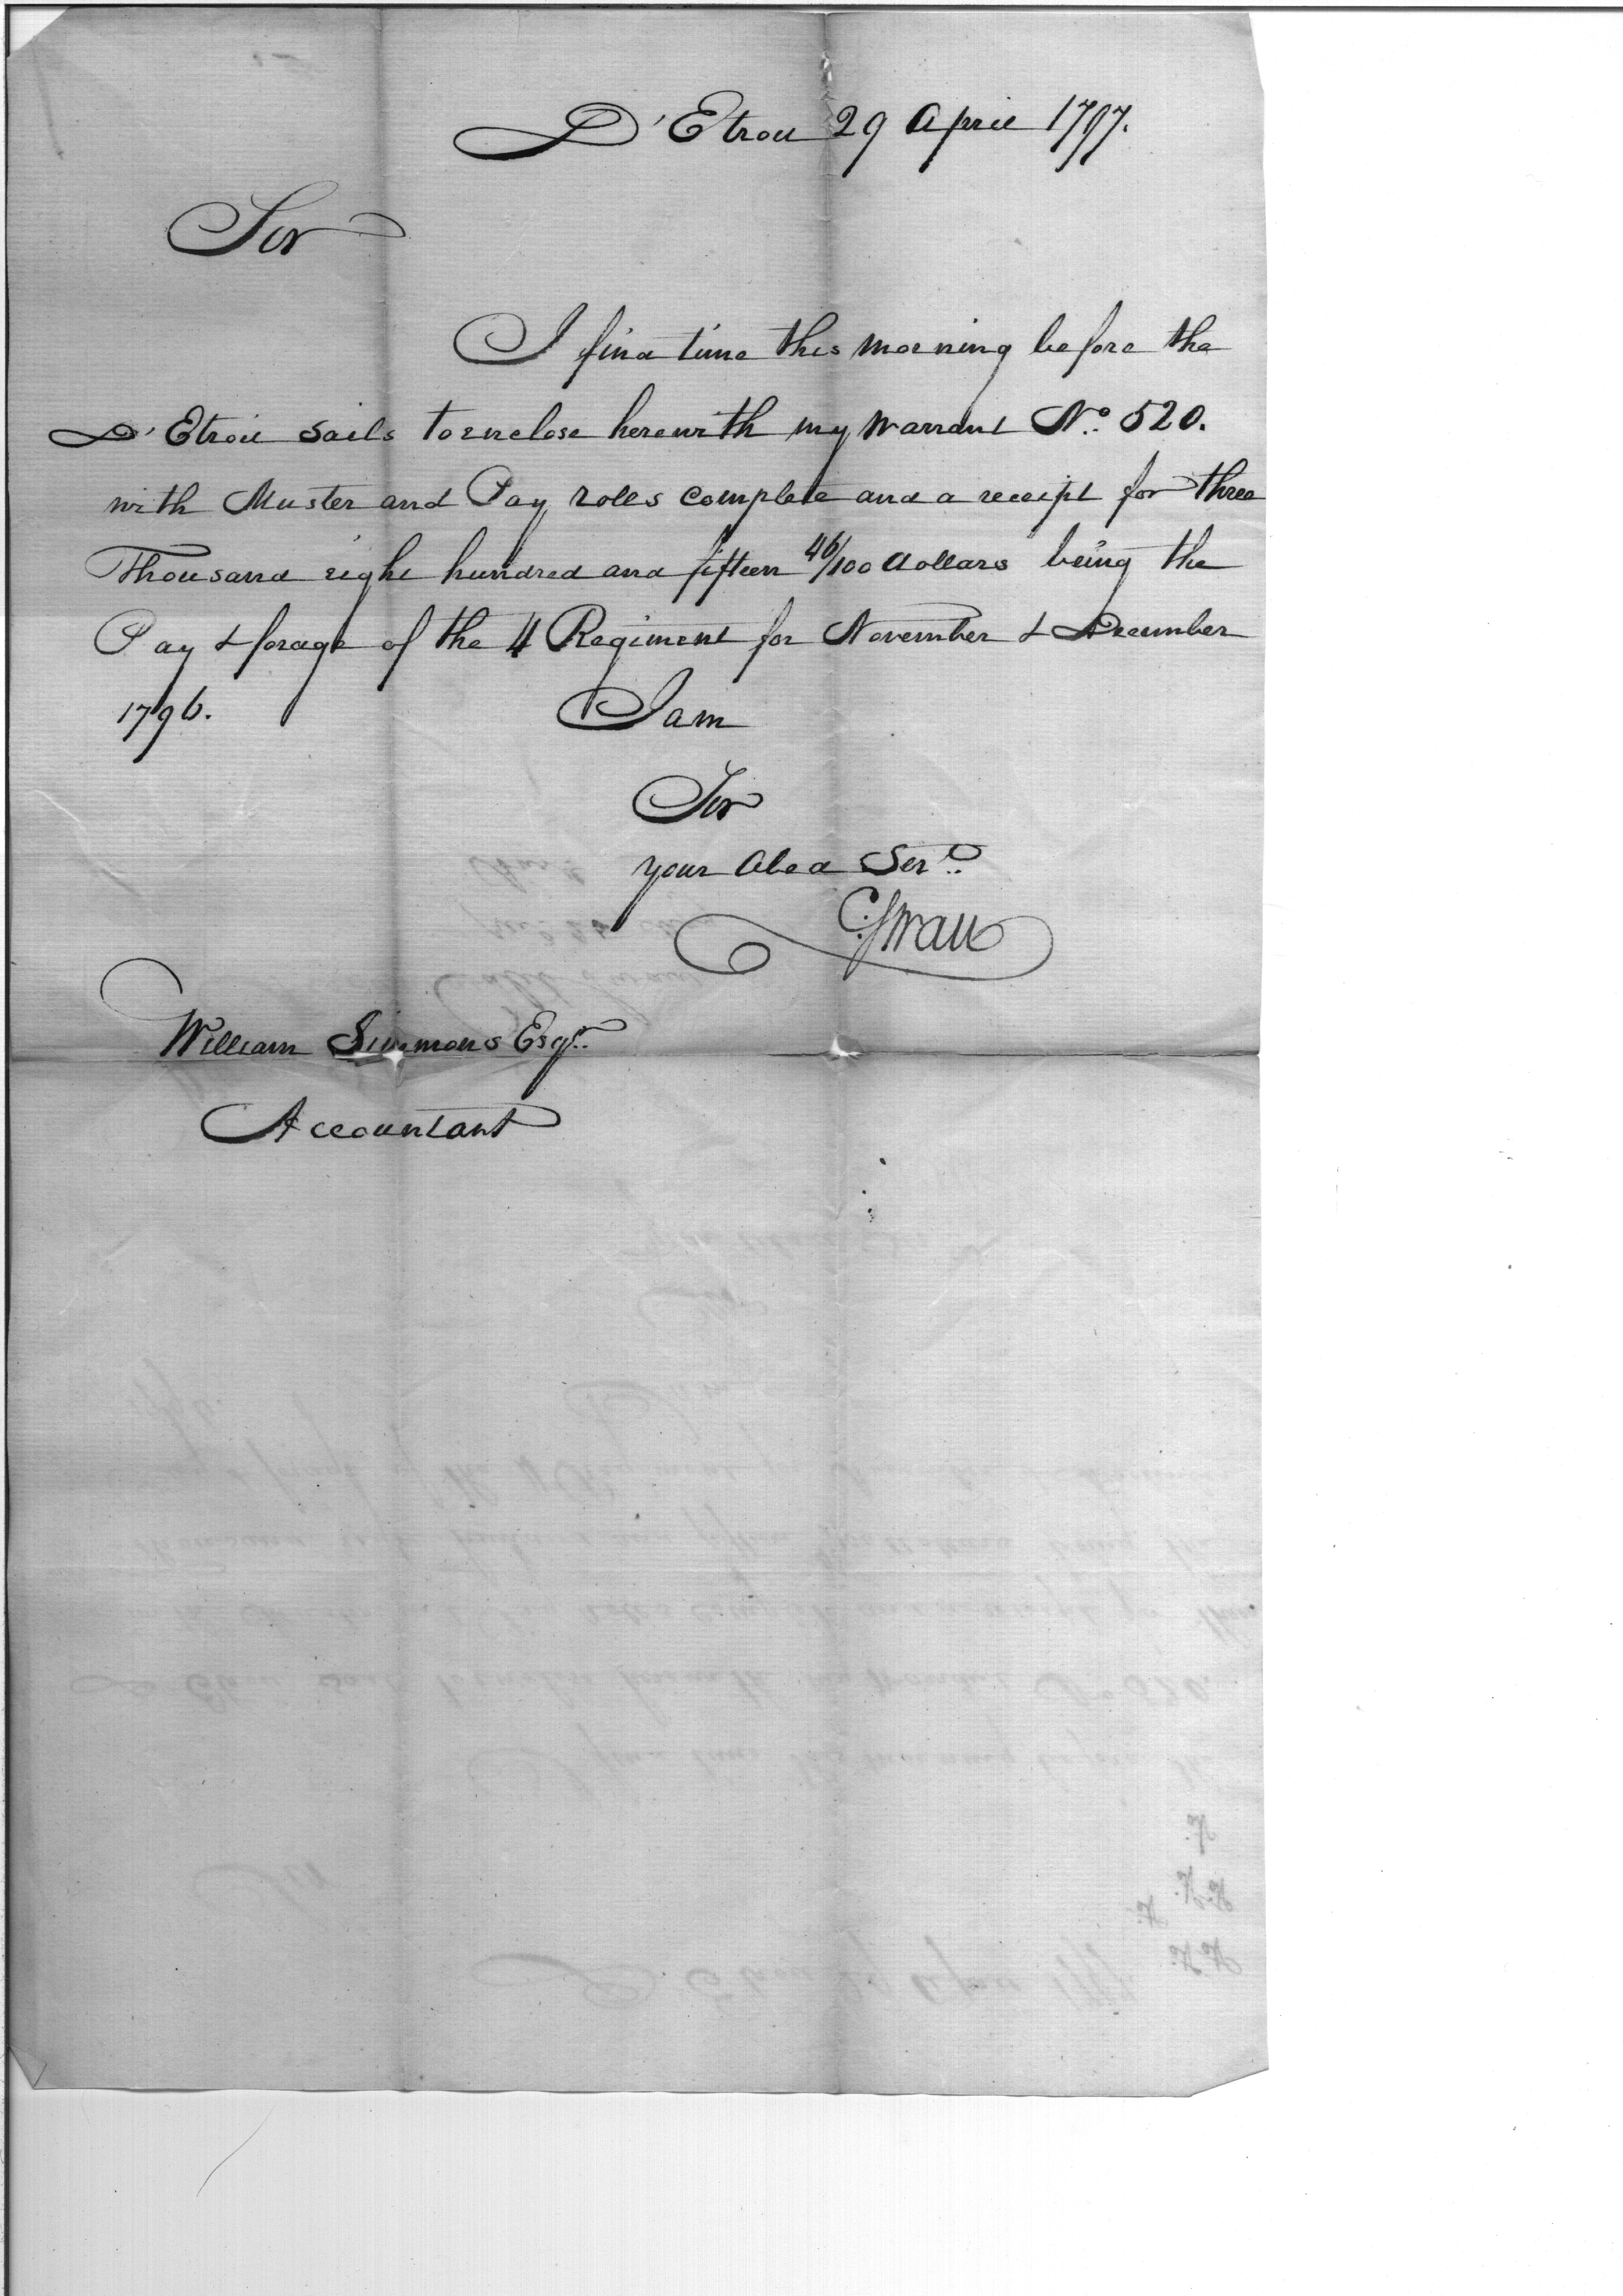 D'Etroit 29 April 1797.
Sir
I find time this morning before the
D'Etroit Sails to enclose herewith my Warrant No. 520.
with Muster and Pay rolls complete and a receipt for three
Thousand eight hundred and fifteen 46/100 dollars being the
Pay & forage of the 4 Regiment for November & December
1796.
I am
Sir
your Obed Sert.
C: Swan
William Simmons Esqr.
Accountant